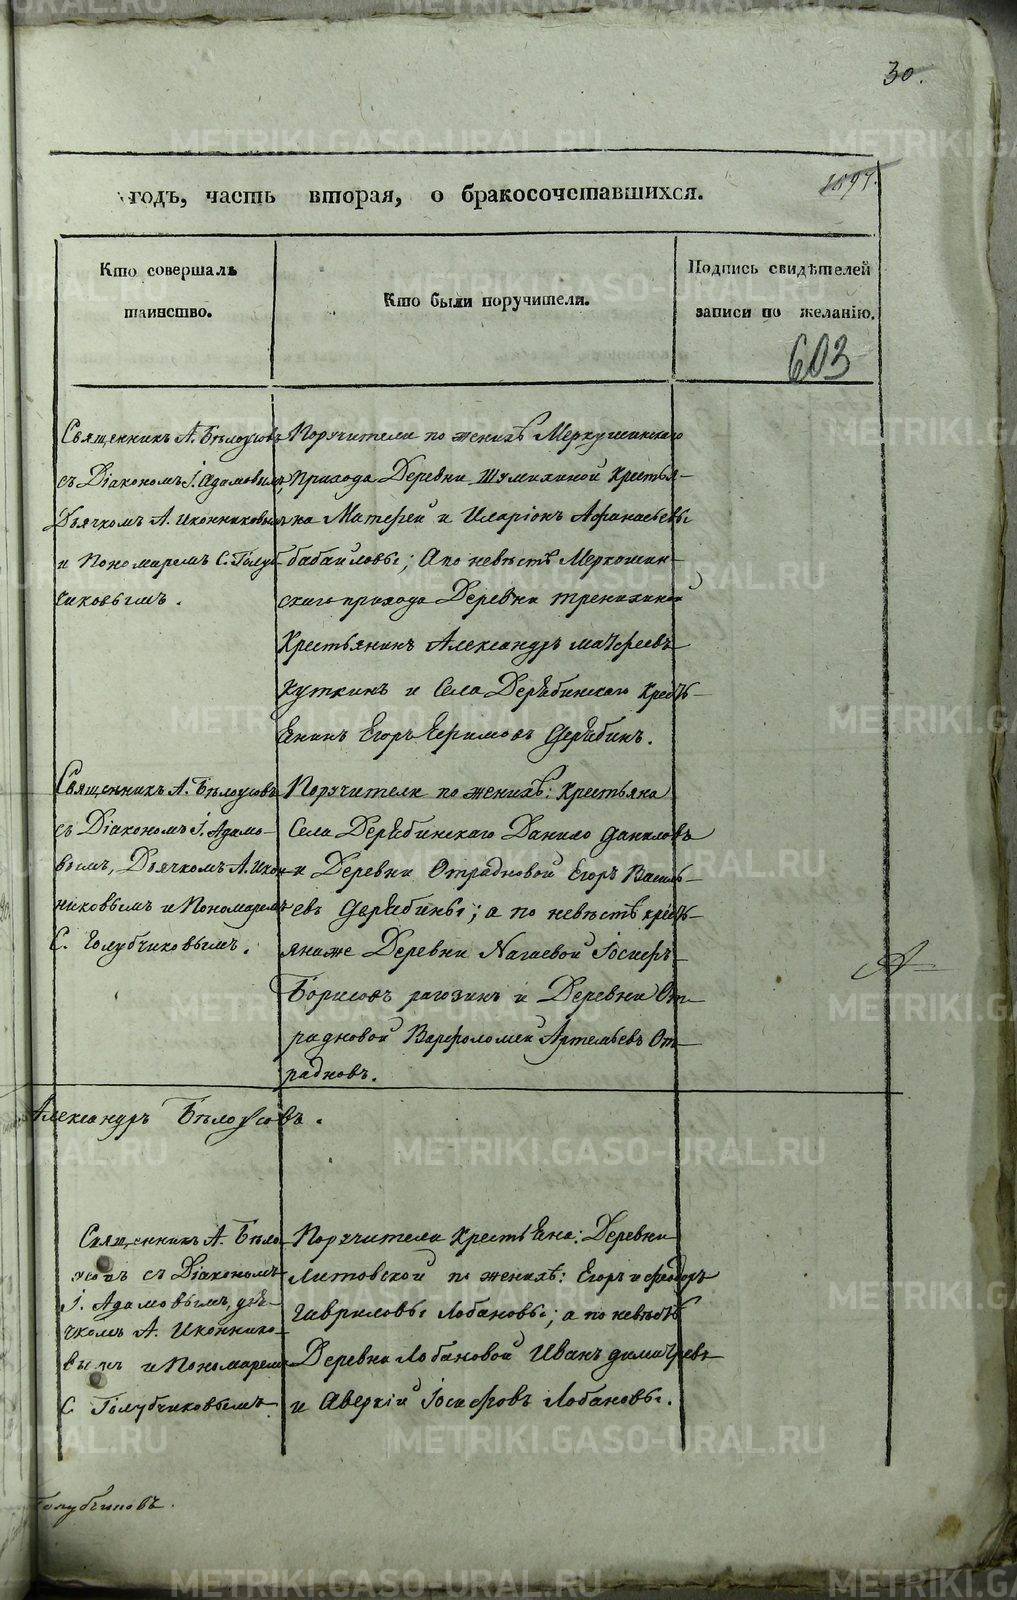 30.
годъ, часть вторая, о бракосочетавшихся.
Кто совершалъ
таинство.
Кто были поручители.
Подпись свидѣтелей
записи по желанію.
603
Священникъ А. Бѣлоусовъ
съ Діакономъ І. Адамовымъ,
Дьячкомъ А. Иконниковымъ
и Пономаремъ С. Голуб-
чиковымъ.
Поручители по женихѣ Меркушинскаго
прихода Деревни Шумихиной Крестья-
на Матфей и Иларіонъ Афанасьевы
бабаиловы; А по невѣстѣ Меркошин-
скаго прихода Деревни
Крестьянинъ Александръ Матфеевъ
Куткинъ и Села Дерябинскаго Кресть-
янинъ Егоръ Ефимовъ Дерябинъ.
Священникъ А. Бѣлоусовъ
съ Діакономъ І. Адамо-
вымъ, Дьячкомъ А. Икон-
никовымъ и Пономаремъ
С. Голубчиковымъ.
Поручители по женихѣ: Крестьяна
Села Дерябинскаго Данило Даниловъ
и Деревни Отрадновой Егоръ Василь-
евъ Дерябины; а по невѣстѣ кресть-
яна же Деревни Нагаевой Іосифъ
Борисовъ рагозинъ и Деревни От-
радновой Варфоломей Артемьевъ От-
радновъ.
Александръ Бѣлоусовъ.
Священникъ А. Бѣло-
усовъ съ Діакономъ
І. Адамовымъ, дья-
чкомъ А. Иконнико-
вымъ и Пономаремъ
С. Голубчиковымъ.
Поручители Крестьяна: Деревни
Литовской по женихѣ: Егоръ и феодоръ
Гавриловы Лобановы; а по невѣстѣ
Деревни Лобановой Иванъ димитріевъ
и Аверкій Іосифовъ Лобановы.
Голубчиковъ.
METRIKI.GASO-URAL.RU